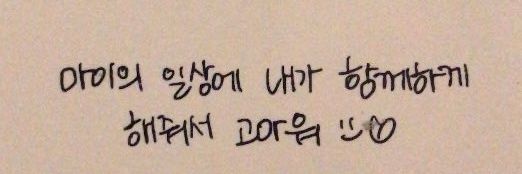 마이의 일상에 내가 함께하게
해줘서 고마워 :) ♡